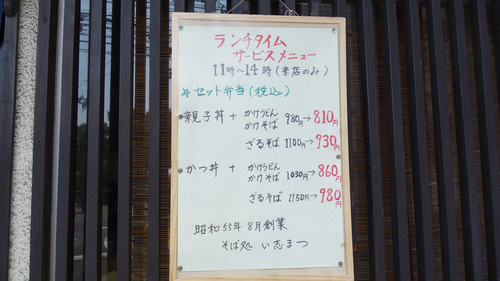 ランチタイム
サービスメニュー
11時〜14時(来店のみ)
☆セット弁当(税込)
親子丼 + かけうどん
かけそば 980円→810円
ざるそば 1100円→930円
かつ丼 + かけうどん
かけそば 1030円→860円
ざるそば 1150円→980円
昭和55年8月創業
そば処 い志まつ